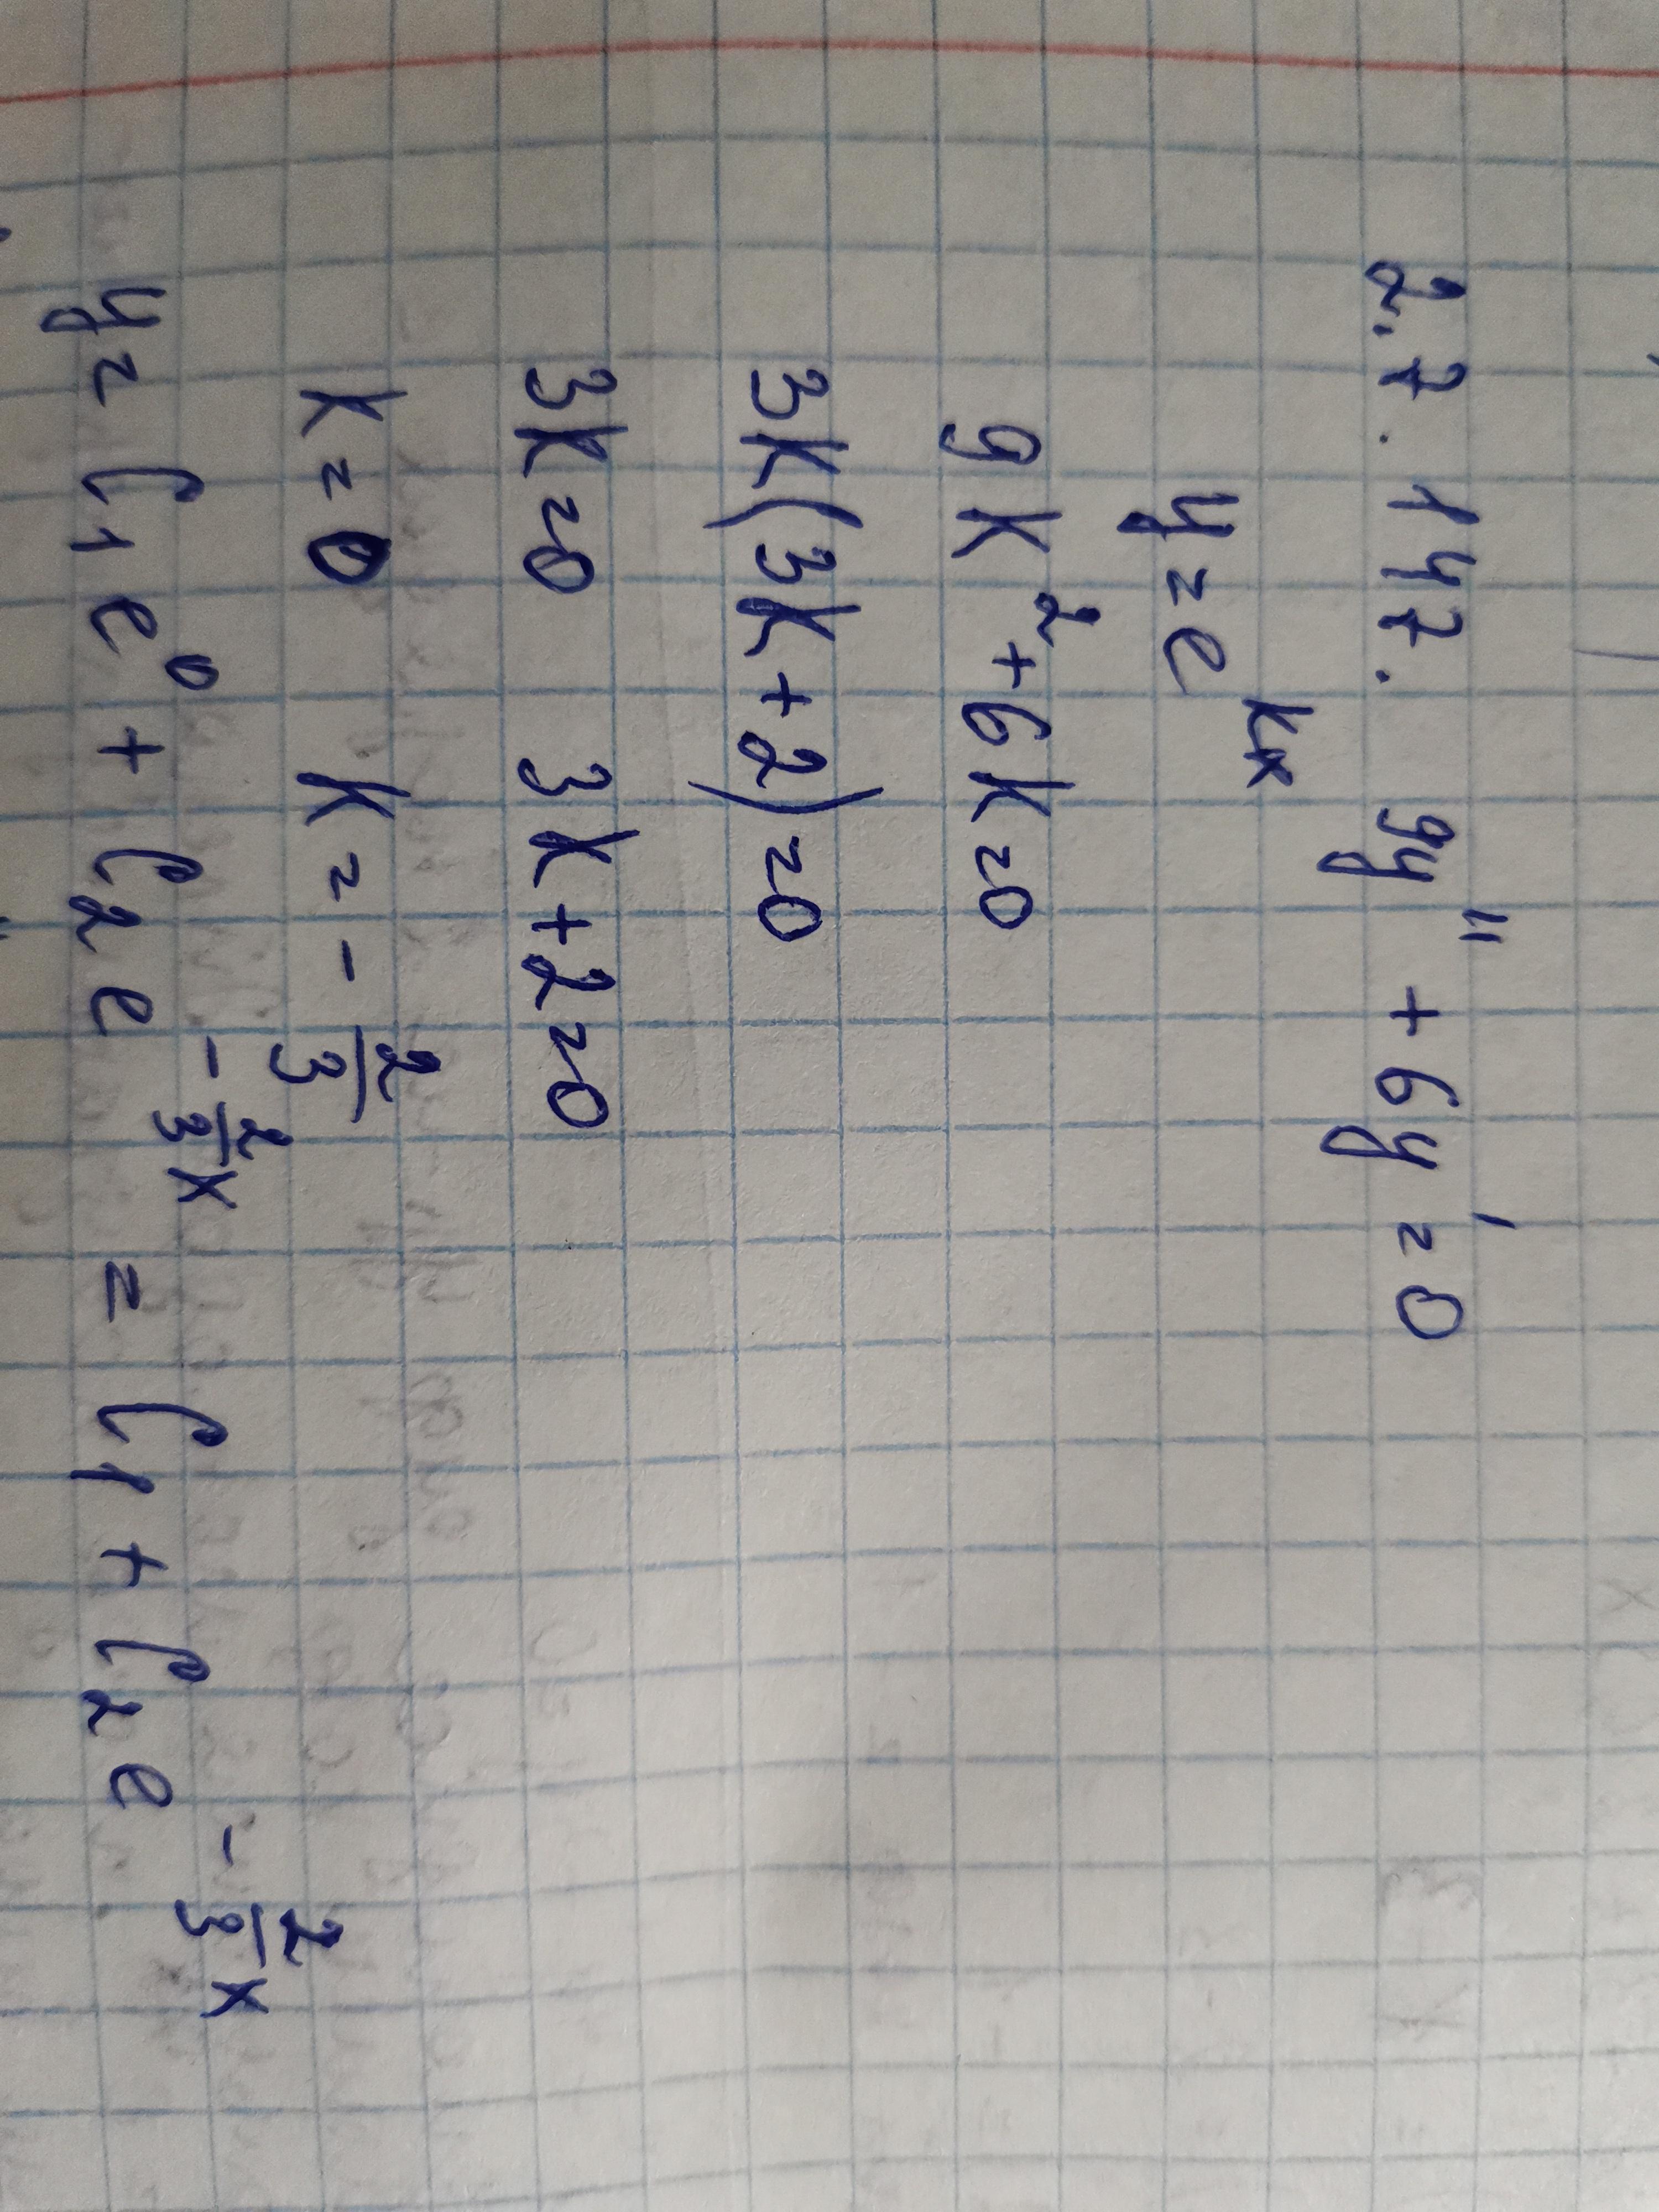 2.7.147. 9y'' + 6y' = 0
y = e^{kx}
9k² + 6k = 0
3k(3k + 2) = 0
3k = 0 3k + 2 = 0
k = 0 k = - 2/3
y = C₁e⁰ + C₂e^{-2/3 x} = C₁ + C₂e^{-2/3 x}